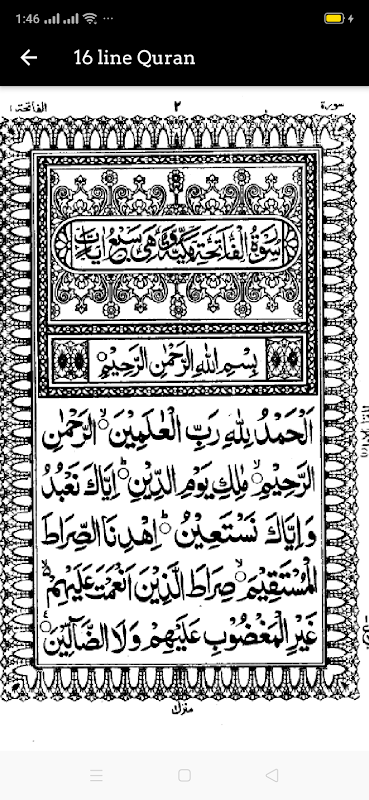 1:46
16 line Quran
سورة ٢ الفاتحة ١
سُوْرَةُ الْفَاتِحَةِ مَكِّيَّةٌ وَّهِيَ سَبْعُ اٰيَاتٍ
بِسْمِ اللّٰهِ الرَّحْمٰنِ الرَّحِيْمِ
اَلْحَمْدُ لِلّٰهِ رَبِّ الْعٰلَمِيْنَ ۙ الرَّحْمٰنِ
الرَّحِيْمِ ۙ مٰلِكِ يَوْمِ الدِّيْنِ ؕ اِيَّاكَ نَعْبُدُ
وَاِيَّاكَ نَسْتَعِيْنُ ؕ اِهْدِنَا الصِّرَاطَ
الْمُسْتَقِيْمَ ۙ صِرَاطَ الَّذِيْنَ اَنْعَمْتَ عَلَيْهِمْ ۙ
غَيْرِ الْمَغْضُوْبِ عَلَيْهِمْ وَلَا الضَّآلِّيْنَ
منزل